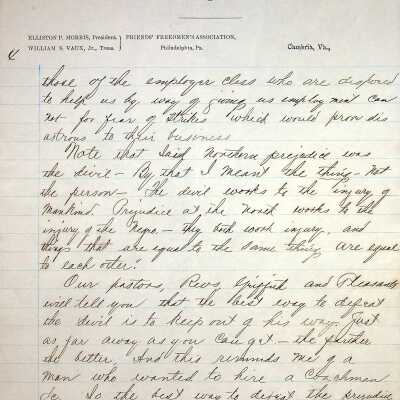 ELLISTON P. MORRIS, President.
WILLIAM S. VAUX, Jr., Treas.
FRIENDS' FREEDMEN'S ASSOCIATION,
Philadelphia, Pa.
Cambria, Va.,
4
those of the employer class who are disposed
to help us by way of giving us employment can
not for fear of strikes which would prove dis
astrous to their business
Note that I said Northern prejudice was
the divil - By that I meant the thing - Not
the person - The devil works to the injury of
Mankind. Prejudice at the North works to the
injury of the Negro - they both work injury, and
things that are equal to the same thing are equal
to each other.
Our pastors, Revs and Pleasants
will tell you that the best way to defeat
the devil is to keep out of his way. Just
as far away as you can get - the further
the better. And this reminds me of a
man who wanted to hire a coachman
So the best way to defeat the prejudice